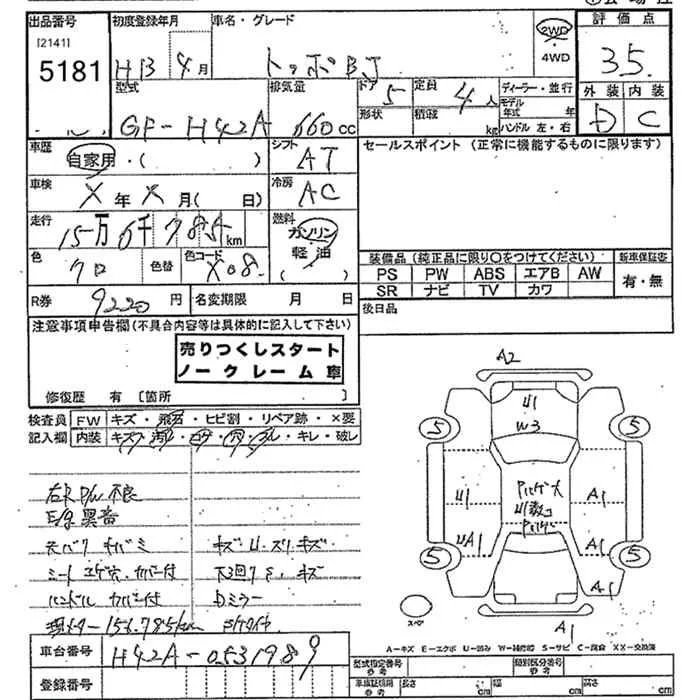 出品番号
[2141]
5181
初度登録年月
H13 4月
車名・グレード
トッポBJ
2WD
・
4WD
評価点
3.5
外装 内装
D C
型式
GF-H42A
排気量
660cc
ドア
5
形状
定員
4人
積載
kg
ディーラー・並行
モデル年式 年
ハンドル 左・右
車歴
自家用・( )
シフト
AT
セールスポイント (正常に機能するものに限ります)
車検
X年X月( 日)
冷房
AC
走行
15万6千785km
燃料
ガソリン
軽油
( )
色
クロ
色替
色コード
X08
装備品 (純正品に限り○をつけてください)
新車保証書
PS PW ABS エアB AW
SR ナビ TV カワ
有・無
R券 9220円
名変期限 月 日
後日品
注意事項申告欄(不具合内容等は具体的に記入して下さい)
売りつくしスタート
ノークレーム車
修復歴 有 [箇所 ]
検査員記入欄
FW キズ・飛石・ヒビ割・リペア跡・×要
内装 キズ・汚レ・コゲ・穴・スレ・キレ・破レ
右R P/W 不良
E/g 異音
シート コゲ穴・カバー付
ハンドル カバー付
現メーター 156,785km
キズ・U・スリキズ
Dミラー
A2
U1
W3
5
5
U1
A1
UA1
A1
5
5
A1
A1
スペア
A=キズ E=エクボ U=凹み W=補修跡 S=サビ C=腐食 XX=交換済
車台番号
H42A-0531989
登録番号
型式指定番号
参考
類別区分番号
参考
車検証記載
参考
長さ cm
幅 cm
高さ cm